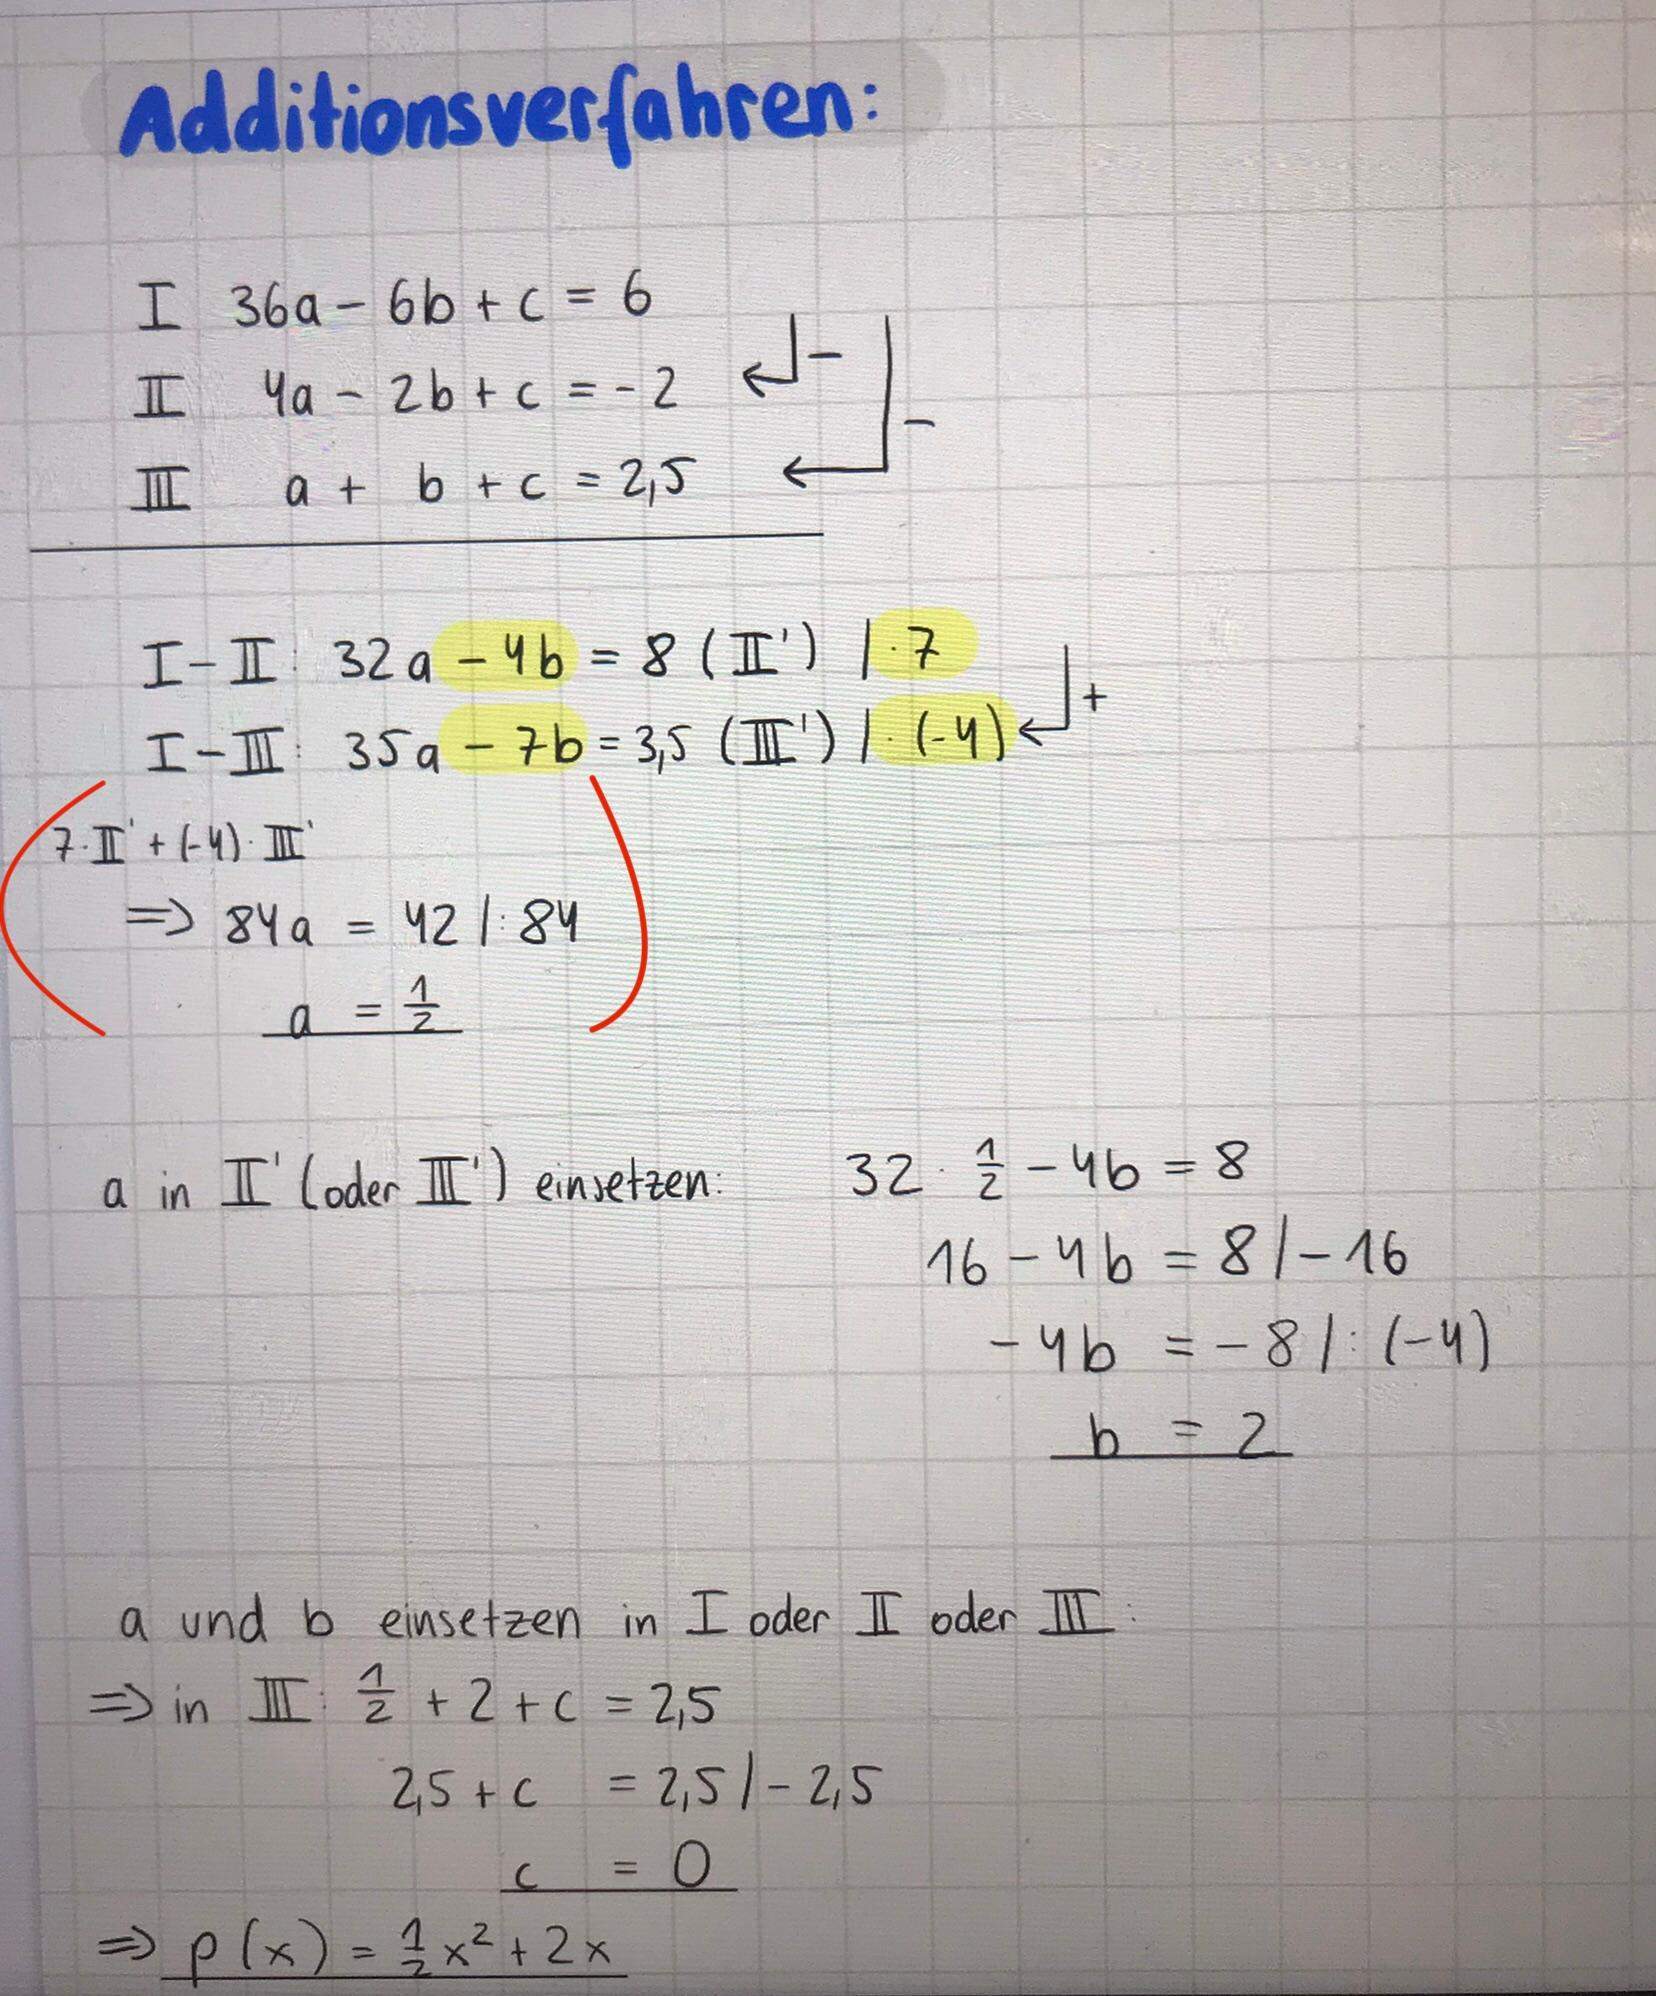 Additionsverfahren:
I 36a - 6b + c = 6
II 4a - 2b + c = -2
III a + b + c = 2,5
-
-
I-II: 32a - 4b = 8 (II') | · 7
I-III: 35a - 7b = 3,5 (III') | · (-4)
+
7·II' + (-4)·III'
=> 84a = 42 |: 84
a = 1/2
a in II' (oder III') einsetzen: 32 · 1/2 - 4b = 8
16 - 4b = 8 | - 16
- 4b = - 8 |: (-4)
b = 2
a und b einsetzen in I oder II oder III:
=> in III: 1/2 + 2 + c = 2,5
2,5 + c = 2,5 | - 2,5
c = 0
=> p(x) = 1/2 x² + 2x